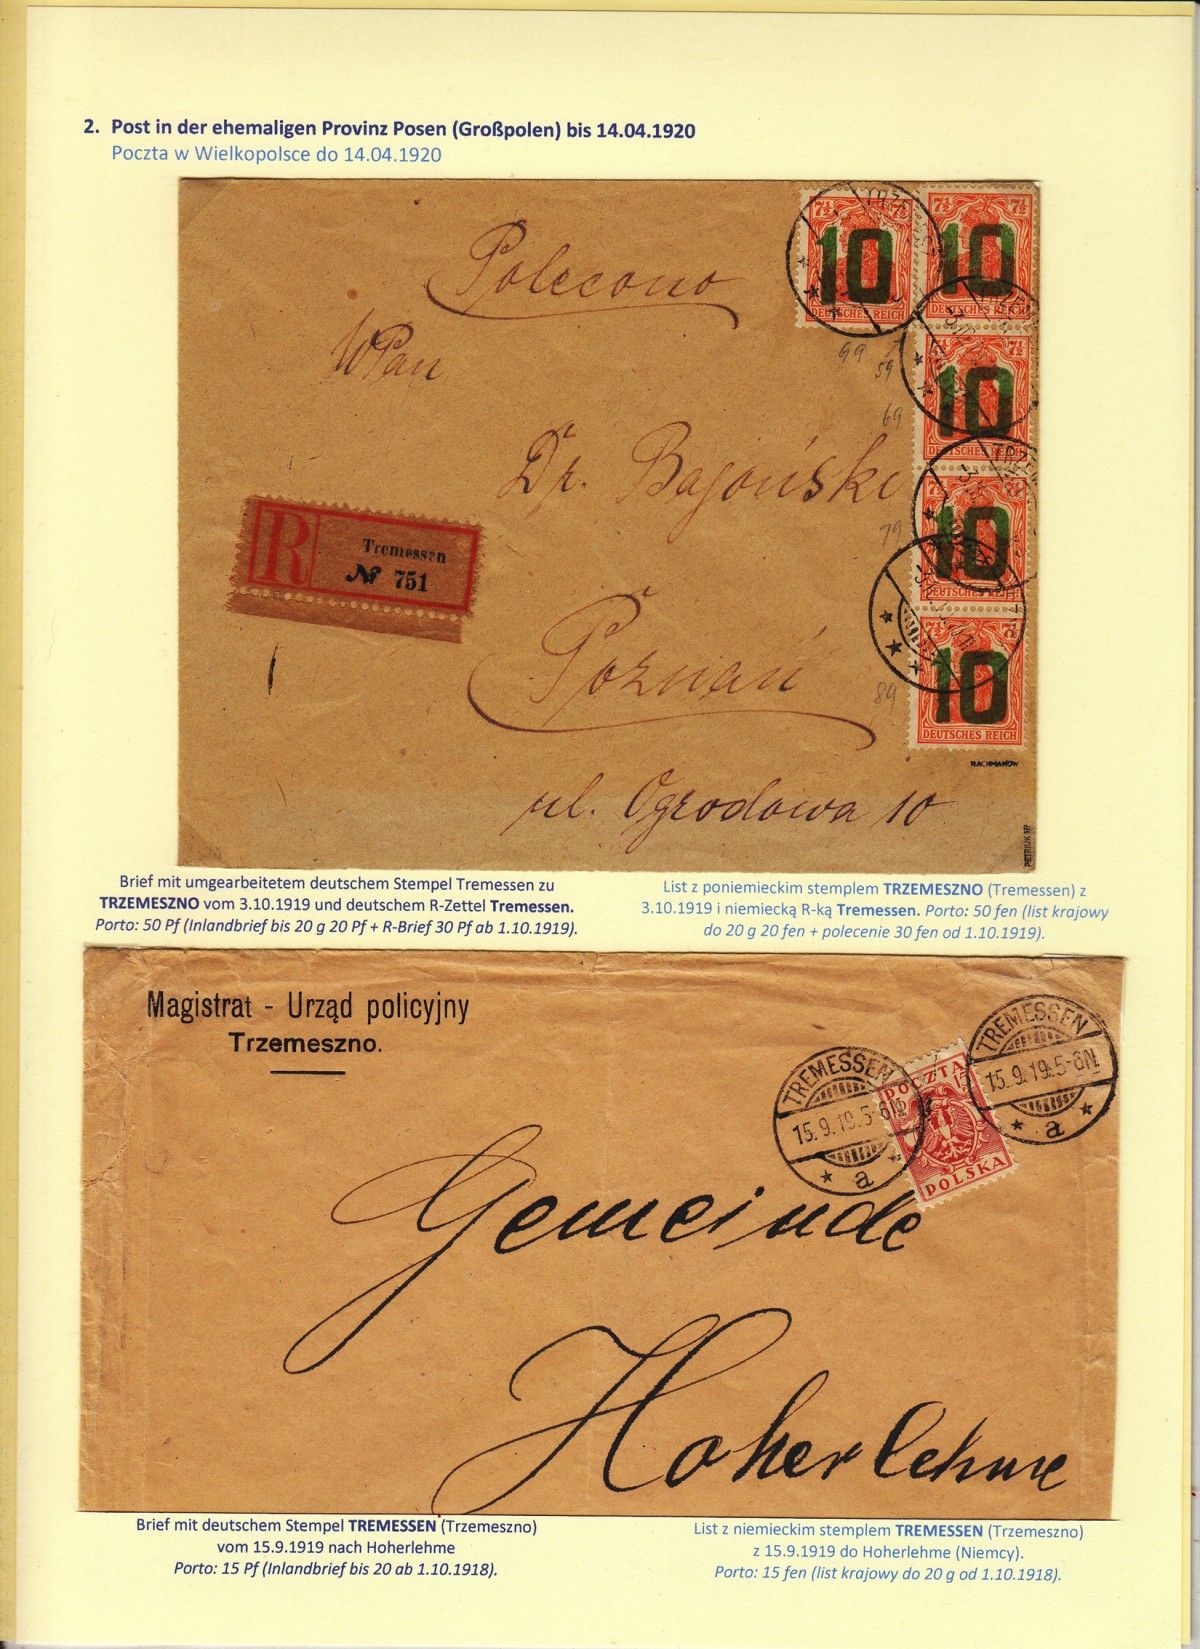 2. Post in der ehemaligen Provinz Posen (Großpolen) bis 14.04.1920
Poczta w Wielkopolsce do 14.04.1920
Polecono
WPan
Dr. Bajoński
Poznań
ul. Ogrodowa 10
R
Tremessen
№ 751
7½ 7½
10
DEUTSCHES REICH
7½ 7½
10
DEUTSCHES REICH
7½
10
DEUTSCHES REICH
10
DEUTSCHES REICH
7½ 7½
10
DEUTSCHES REICH
69
59
69
79
89
RACHMANÓW
Brief mit umgearbeitetem deutschem Stempel Tremessen zu
TRZEMESZNO vom 3.10.1919 und deutschem R-Zettel Tremessen.
Porto: 50 Pf (Inlandbrief bis 20 g 20 Pf + R-Brief 30 Pf ab 1.10.1919).
List z poniemieckim stemplem TRZEMESZNO (Tremessen) z
3.10.1919 i niemiecką R-ką Tremessen. Porto: 50 fen (list krajowy
do 20 g 20 fen + polecenie 30 fen od 1.10.1919).
Magistrat - Urząd policyjny
Trzemeszno.
TREMESSEN
15.9.19.5-6N
a
POCZTA
15
POLSKA
TREMESSEN
15.9.19.5-6N
a
Gemeinde
Hoherlehme
Brief mit deutschem Stempel TREMESSEN (Trzemeszno)
vom 15.9.1919 nach Hoherlehme
Porto: 15 Pf (Inlandbrief bis 20 ab 1.10.1918).
List z niemieckim stemplem TREMESSEN (Trzemeszno)
z 15.9.1919 do Hoherlehme (Niemcy).
Porto: 15 fen (list krajowy do 20 g od 1.10.1918).